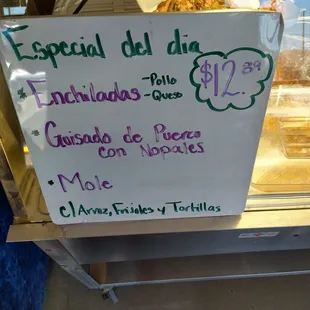 Especial del día
* Enchiladas -Pollo
-Queso
$12.89
* Guisado de Puerco
con Nopales
• Mole
c/ Arroz, Frijoles y Tortillas